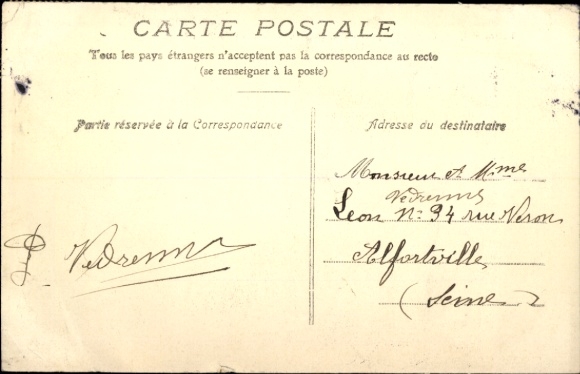 CARTE POSTALE
Tous les pays étrangers n'acceptent pas la correspondance au recto
(se renseigner à la poste)
Partie réservée à la Correspondance
Vedrenne
Adresse du destinataire
Monsieur et Mme
Vedrenne
Léon No 94 rue Véron
Alfortville
(Seine)